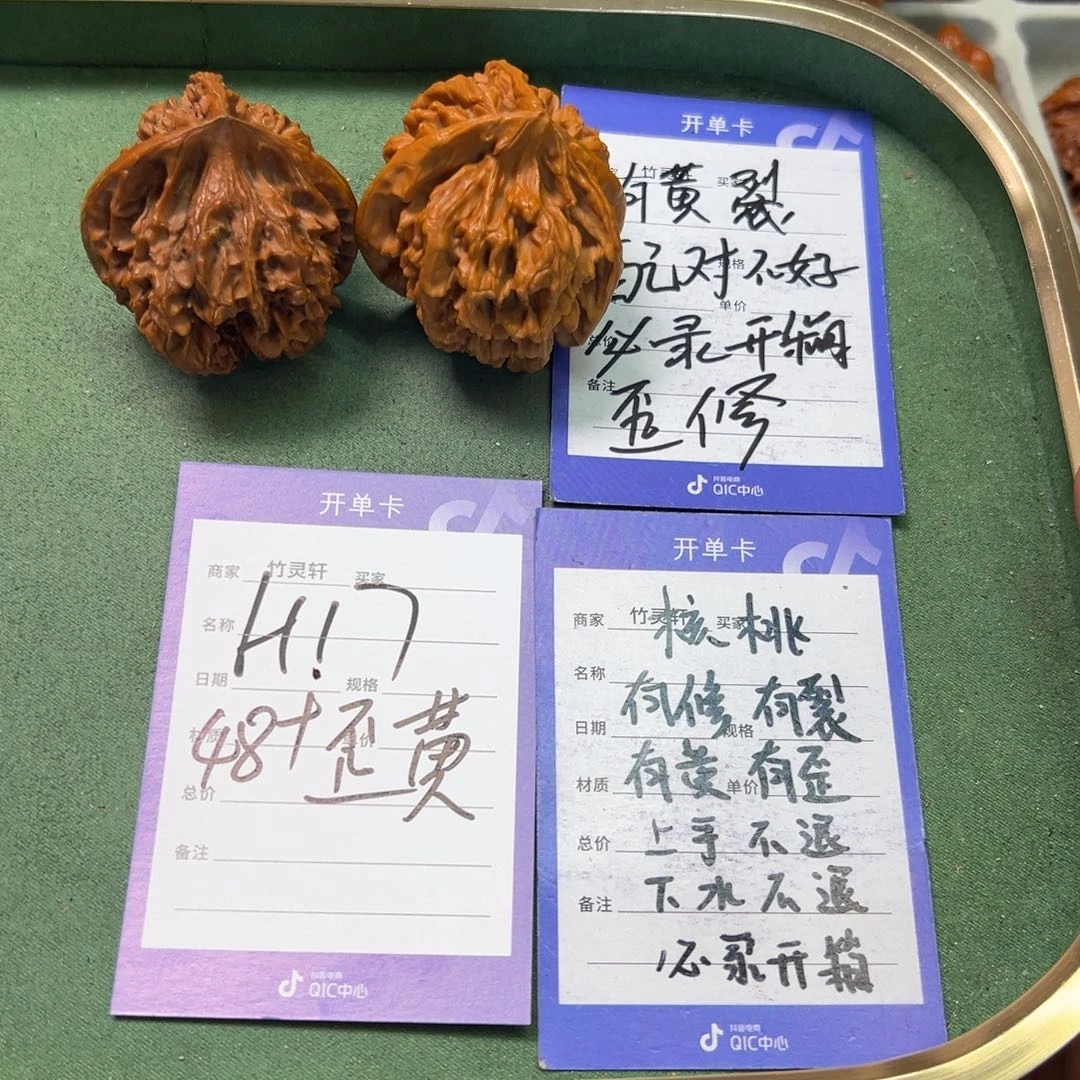 开单卡
竹灵轩 买家
有黄裂
玩对不好
规格
单价
必录开箱
总价
备注
歪修
抖音电商
QIC中心
开单卡
商家 竹灵轩 买家
H!7
名称
日期 规格
48+歪黄
材质 单价
总价
备注
抖音电商
QIC中心
开单卡
商家 竹灵轩 买家
核桃
名称
有修有裂
日期 规格
材质 有黄 单价 有歪
总价 上手不退
备注 下水不退
必录开箱
抖音电商
QIC中心